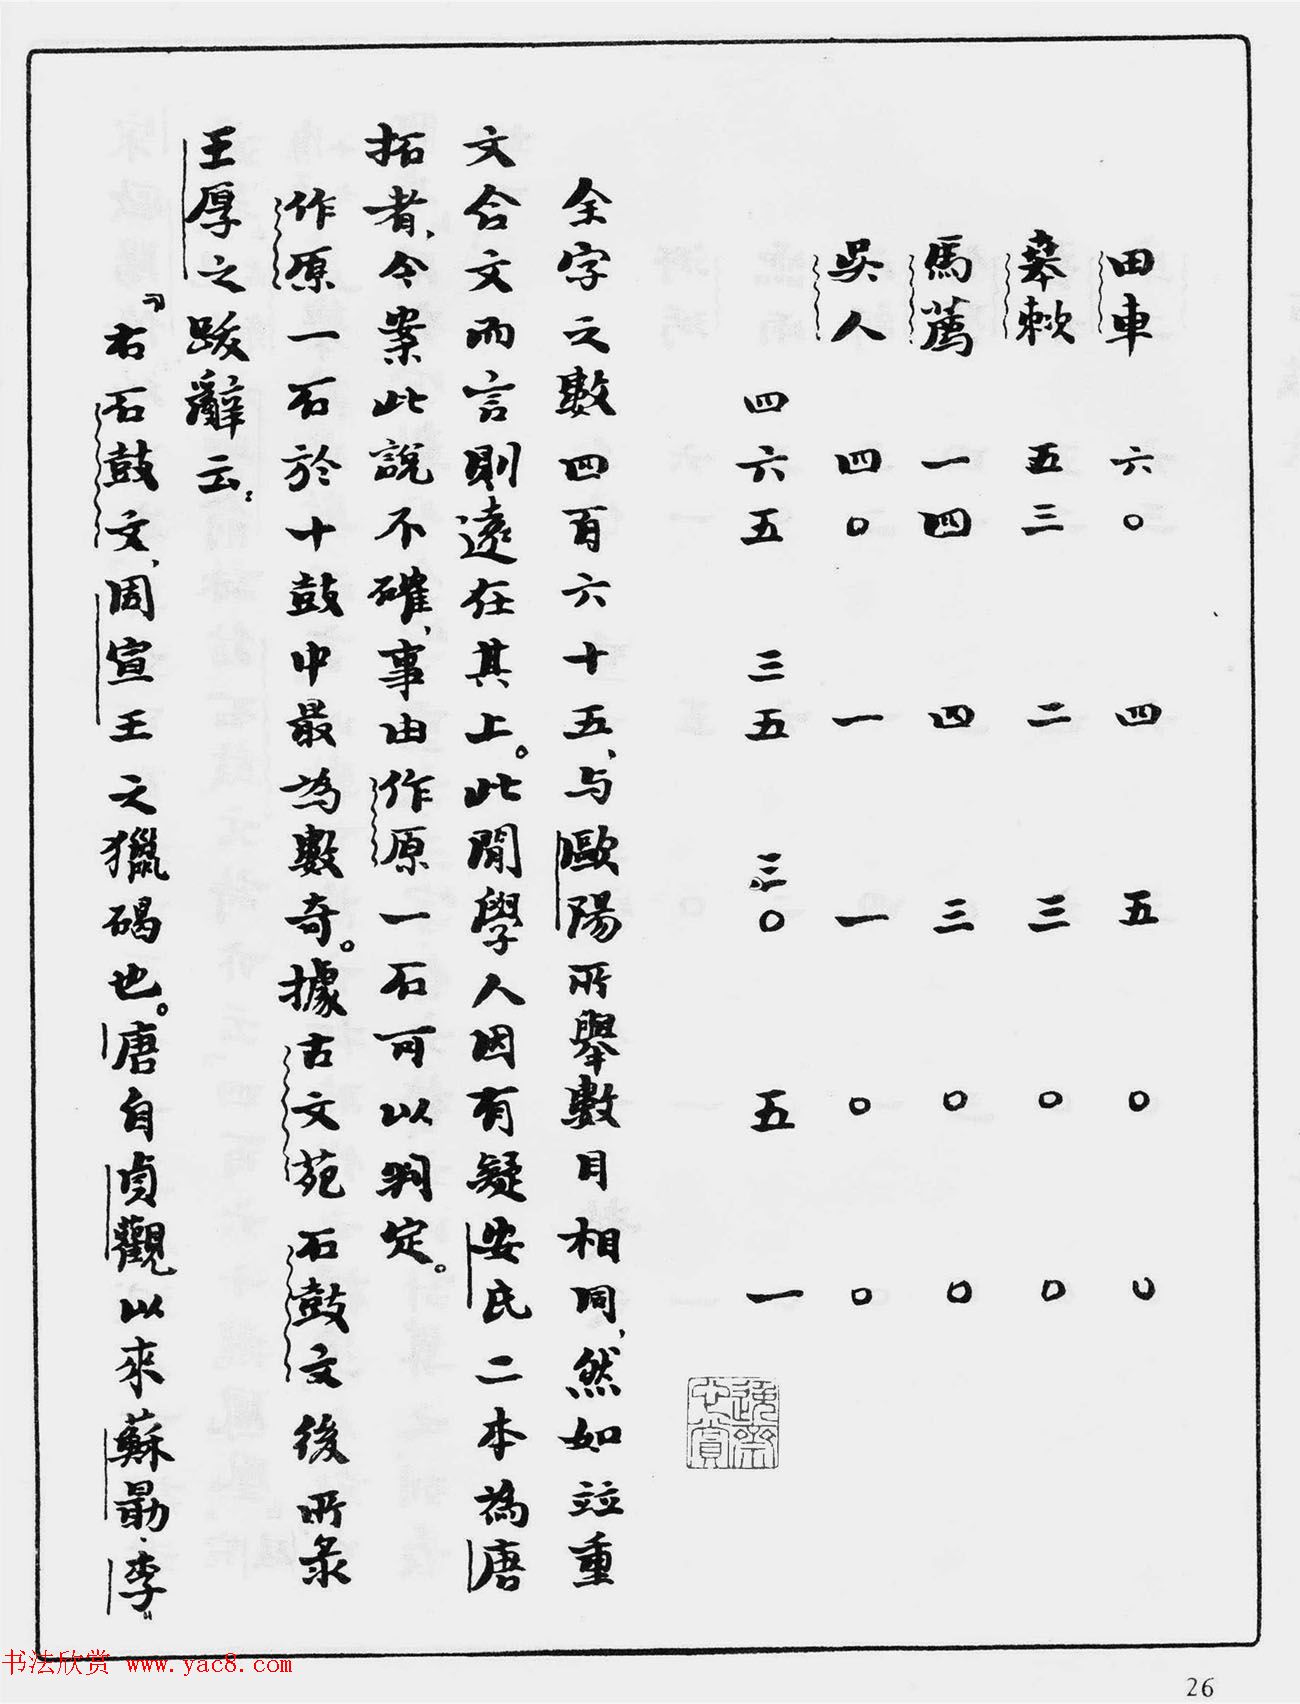 田車 六〇 四 五 〇 〇
𠦪敕 五三 二 三 〇 〇
馬薦 一四 四 三 〇 〇
吳人 四〇 一 一 〇 〇
四六五 三五 三〇 五 一
全字之數四百六十五、与歐陽所舉數目相同、然如竝重
文合文而言則遠在其上。此閒學人因有疑安氏二本為唐
拓者、今案此說不確、事由作原一石可以判定。
作原一石於十鼓中最為數奇。據古文苑石鼓文後所录
王厚之跋辭云：
『右石鼓文、周宣王之獵碣也。唐自貞觀以來蘇勗、李
书法欣赏 www.yac8.com
26